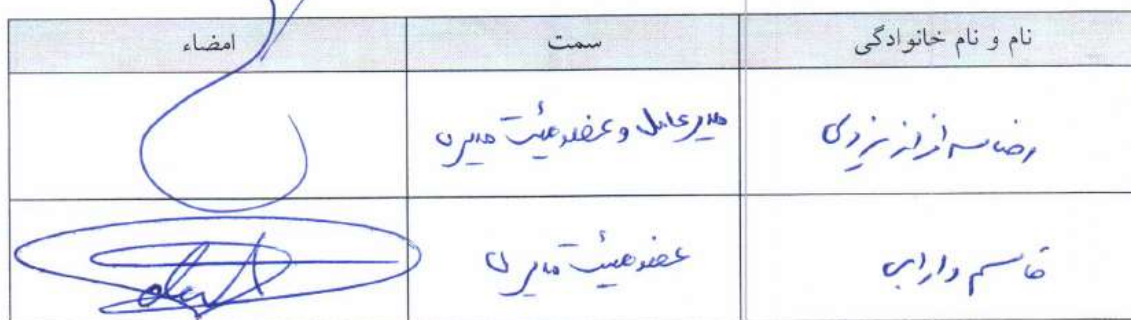 نام و نام خانوادگی سمت امضاء
رضا یزدی مدیرعامل و عضو هیئت مدیره
قاسم دارابی عضو هیئت مدیره